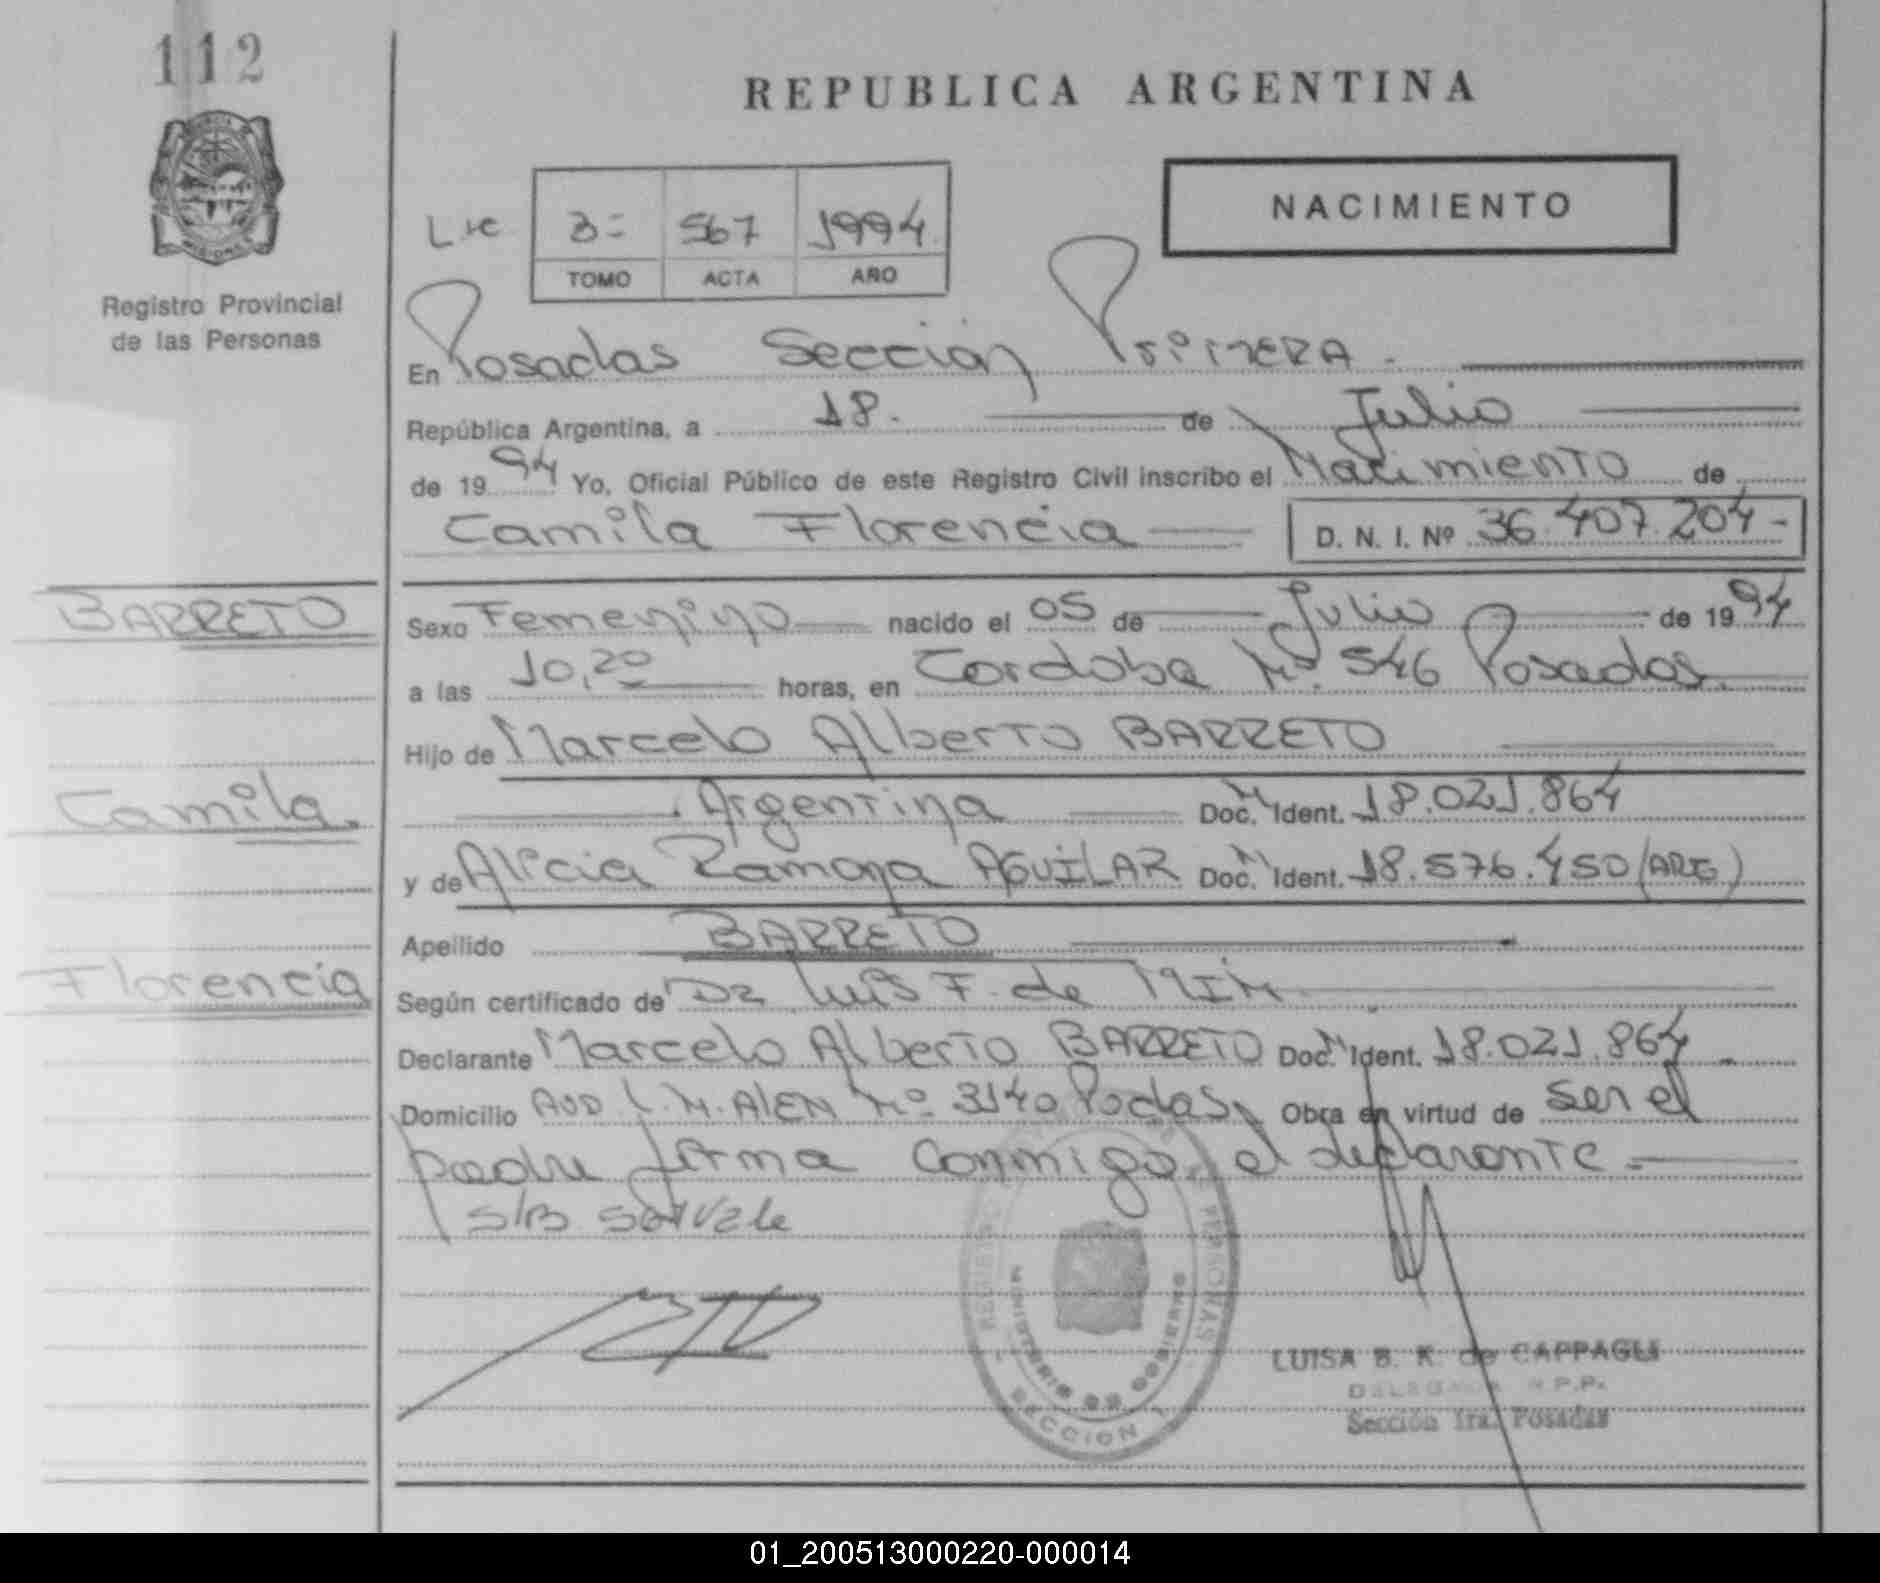 112
REPUBLICA ARGENTINA
NACIMIENTO
3= 567 1994
TOMO ACTA AÑO
Registro Provincial
de las Personas
En Posadas Sección Primera.
República Argentina, a 18. de Julio
de 1994 Yo, Oficial Público de este Registro Civil inscribo el Nacimiento de
Camila Florencia D. N. I. Nº 36.407.204-
BARRETO
Sexo Femenino nacido el 05 de Julio de 1994
a las 10,20 horas, en Cordoba Nº. 546 Posadas.
Hijo de Marcelo Alberto BARRETO
Camila.
Argentina Doc. N Ident. 18.021.864
y de Alicia Ramona AGUILAR Doc. N Ident. 18.576.450 (ARG)
Apellido BARRETO
Florencia
Según certificado de Dr Luis F. de
Declarante Marcelo Alberto BARRETO Doc. N Ident. 18.021.864
Domicilio AVD L.N. ALEM Nº 3140 Podas. Obra en virtud de ser el
padre firma conmigo el declarante.
S/B
REGISTRO DE PERSONAS
MINISTERIO DE GOBIERNO
SECCION 1
LUISA B. K. de CAPPAGLI
DELEGADA R.P.P.
Sección 1ra. Posadas
01_200513000220-000014